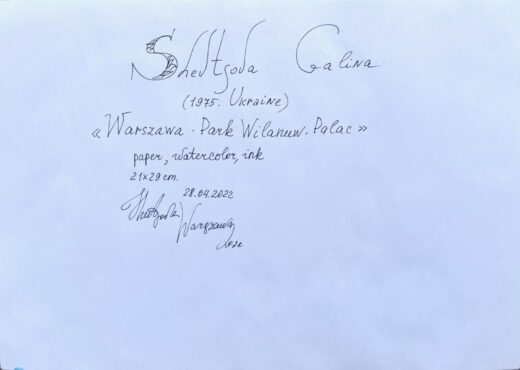 Shedtsoda Galina
(1975. Ukraine)
«Warszawa · Park Wilanuw · Palac»
paper, watercolor, ink
21x29 cm.
28.04.2022
Warszawa
2022